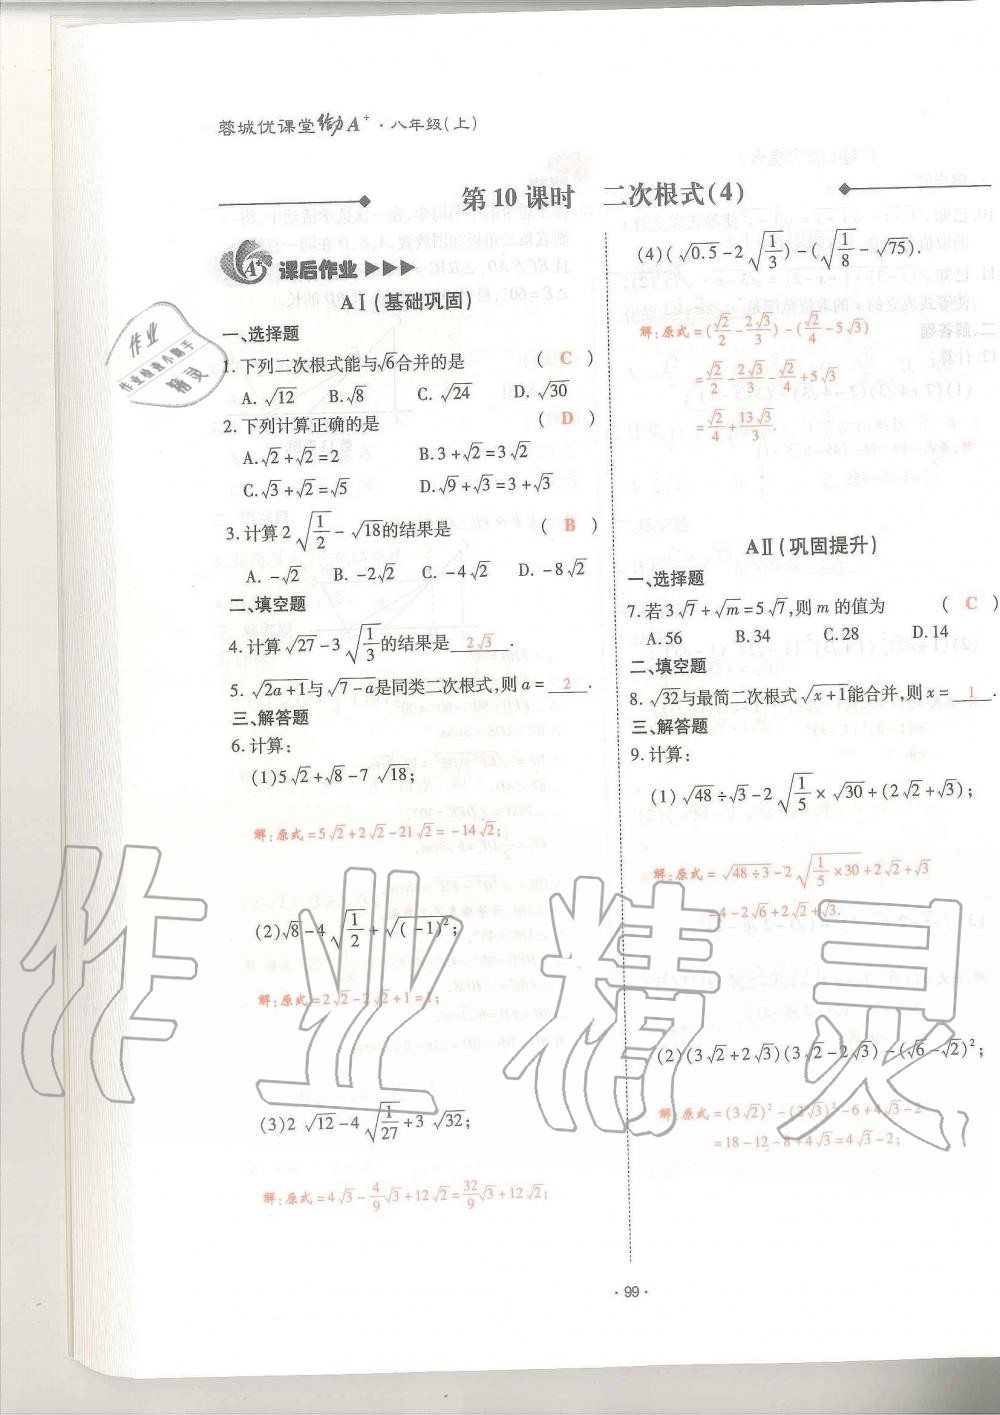 蓉城优课堂 给力A⁺·八年级(上)
第10课时 二次根式(4)
A⁺ 课后作业
AⅠ(基础巩固)
一、选择题
1.下列二次根式能与√6合并的是 ( C )
A. √12 B. √8 C. √24 D. √30
2.下列计算正确的是 ( D )
A. √2+√2=2 B. 3+√2=3√2
C. √3+√2=√5 D. √9+√3=3+√3
3.计算2√(1/2)-√18的结果是 ( B )
A. -√2 B. -2√2 C. -4√2 D. -8√2
二、填空题
4.计算√27-3√(1/3)的结果是 2√3 .
5. √(2a+1)与√(7-a)是同类二次根式,则a= 2 .
三、解答题
6.计算:
(1)5√2+√8-7√18;
解:原式=5√2+2√2-21√2=-14√2;
(2)√8-4√(1/2)+√((-1)²);
解:原式=2√2-2√2+1=1;
(3)2√12-4√(1/27)+3√32;
解:原式=4√3-4/9√3+12√2=32/9√3+12√2;
(4)(√0.5-2√(1/3))-(√(1/8)-√75).
解:原式=(√2/2-2√3/3)-(√2/4-5√3)
=√2/2-2√3/3-√2/4+5√3
=√2/4+13√3/3.
AⅡ(巩固提升)
一、选择题
7.若3√7+√m=5√7,则m的值为 ( C )
A.56 B.34 C.28 D.14
二、填空题
8. √32与最简二次根式√(x+1)能合并,则x= 1 .
三、解答题
9.计算:
(1)√48÷√3-2√(1/5)×√30+(2√2+√3);
解:原式=√(48÷3)-2√(1/5×30)+2√2+√3
=4-2√6+2√2+√3.
(2)(3√2+2√3)(3√2-2√3)-(√6-√2)²;
解:原式=(3√2)²-(2√3)²-6+4√3-2
=18-12-8+4√3=4√3-2;
·99·
作业
作业检查小助手
精灵
作业精灵